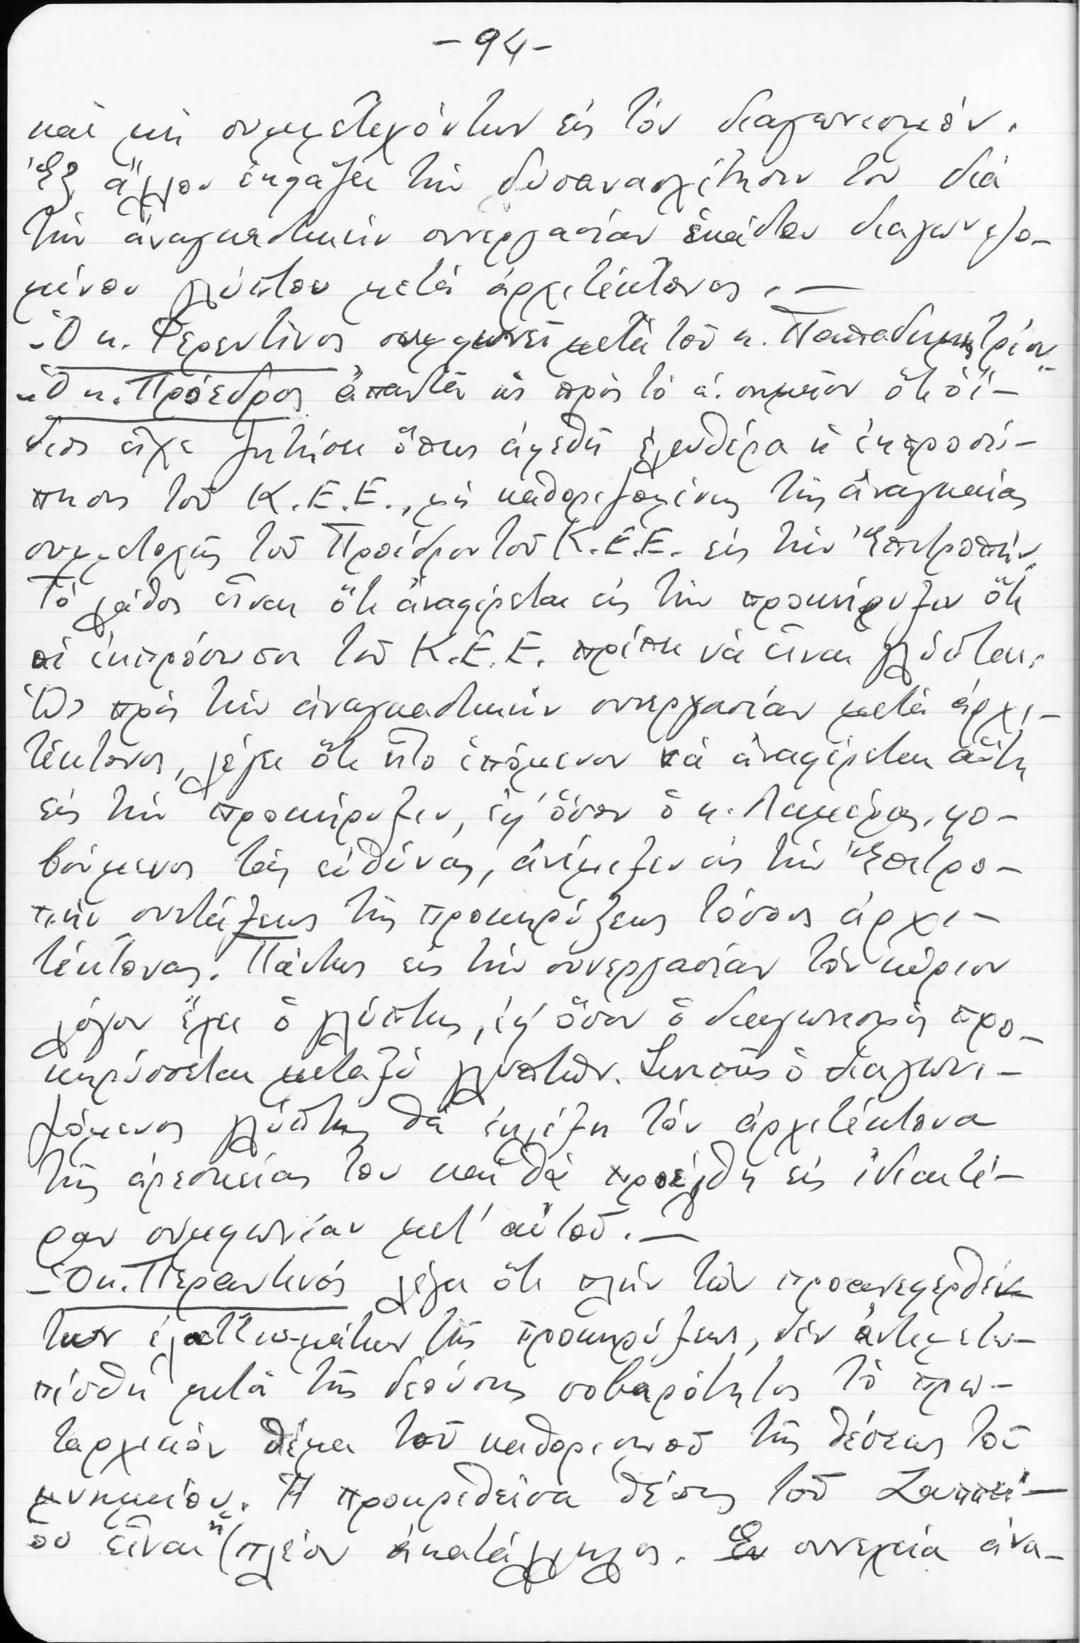 -94-
καὶ μὴ συμμετεχόντων εἰς τὸν διαγωνισμόν.
Ἐξ ἄλλου ἐκφράζει τὴν δυσανασχέτησίν του διὰ
τὴν ἀναγκαστικὴν συνεργασίαν ἑκάστου διαγωνιζο-
μένου γλύπτου μετὰ ἀρχιτέκτονος. —
- Ὁ κ. Φερεντῖνος συμφωνεῖ μετὰ τοῦ κ. Παπαδημητρίου
- Ὁ κ. Πρόεδρος ἀπαντᾷ ὡς πρὸς τὸ α. σημεῖον ὅτι ὁ ἴ-
διος εἶχε ζητήσει ὅπως ἀφεθῇ ἐλευθέρα ἡ ἐκπροσώ-
πησις τοῦ Κ.Ε.Ε., μὴ καθοριζομένης τῆς ἀναγκαίας
συμμετοχῆς τοῦ Προέδρου τοῦ Κ.Ε.Ε. εἰς τὴν Ἐπιτροπήν.
Τὸ λάθος εἶναι ὅτι ἀναφέρεται εἰς τὴν προκήρυξιν ὅτι
οἱ ἐκπρόσωποι τοῦ Κ.Ε.Ε. πρέπει νὰ εἶναι γλύπται.
Ὡς πρὸς τὴν ἀναγκαστικὴν συνεργασίαν μετὰ ἀρχι-
τέκτονος, λέγει ὅτι ἦτο ἑπόμενον νὰ ἀναφέρεται αὕτη
εἰς τὴν προκήρυξιν, ἐφ' ὅσον ὁ κ. Λαμέρας, φο-
βούμενος τὰς εὐθύνας, ἀνέμιξεν εἰς τὴν Ἐπιτρο-
πὴν συντάξεως τῆς προκηρύξεως τόσους ἀρχι-
τέκτονας. Πάντως εἰς τὴν συνεργασίαν τὸν κύριον
λόγον ἔχει ὁ γλύπτης, ἐφ' ὅσον ὁ διαγωνισμὸς προ-
κηρύσσεται μεταξὺ γλυπτῶν. Συνεπῶς ὁ διαγωνι-
ζόμενος γλύπτης θὰ ἐκλέξη τὸν ἀρχιτέκτονα
τῆς ἀρεσκείας του καὶ θὰ προέλθη εἰς ἰδιαιτέ-
ραν συμφωνίαν μετ' αὐτοῦ. —
- Ὁ κ. Περαντινός λέγει ὅτι πλὴν τῶν προαναφερθέν-
των ἐλαττωμάτων τῆς προκηρύξεως, δὲν ἀντιμετω-
πίσθη μετὰ τῆς δεούσης σοβαρότητος τὸ πρω-
ταρχικὸν θέμα τοῦ καθορισμοῦ τῆς θέσεως τοῦ
μνημείου. Ἡ προκριθεῖσα θέσις τοῦ Ζαππεί-
ου εἶναι ἡ πλέον ἀκατάλληλος. Ἐν συνεχείᾳ ἀνα-